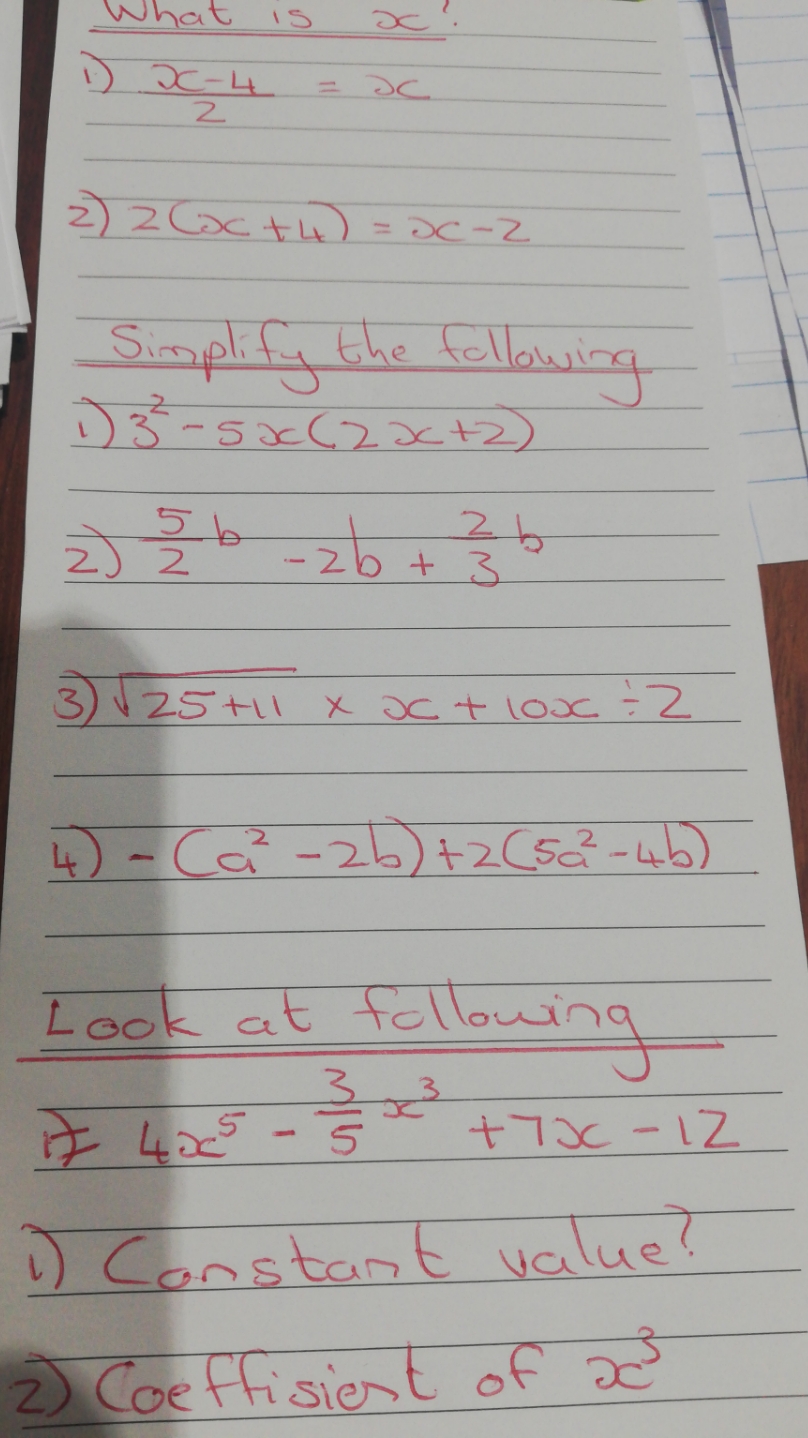 What is x?
1) x-4/2 = x
2) 2(x+4) = x-2
Simplify the following
1) 3² - 5x(2x+2)
2) 5/2 b - 2b + 2/3 b
3) √25+11 × x + 10x ÷ 2
4) - (a² - 2b) + 2(5a² - 4b)
Look at following
4x⁵ - 3/5 x³ + 7x - 12
1) Constant value?
2) Coeffisient of x³